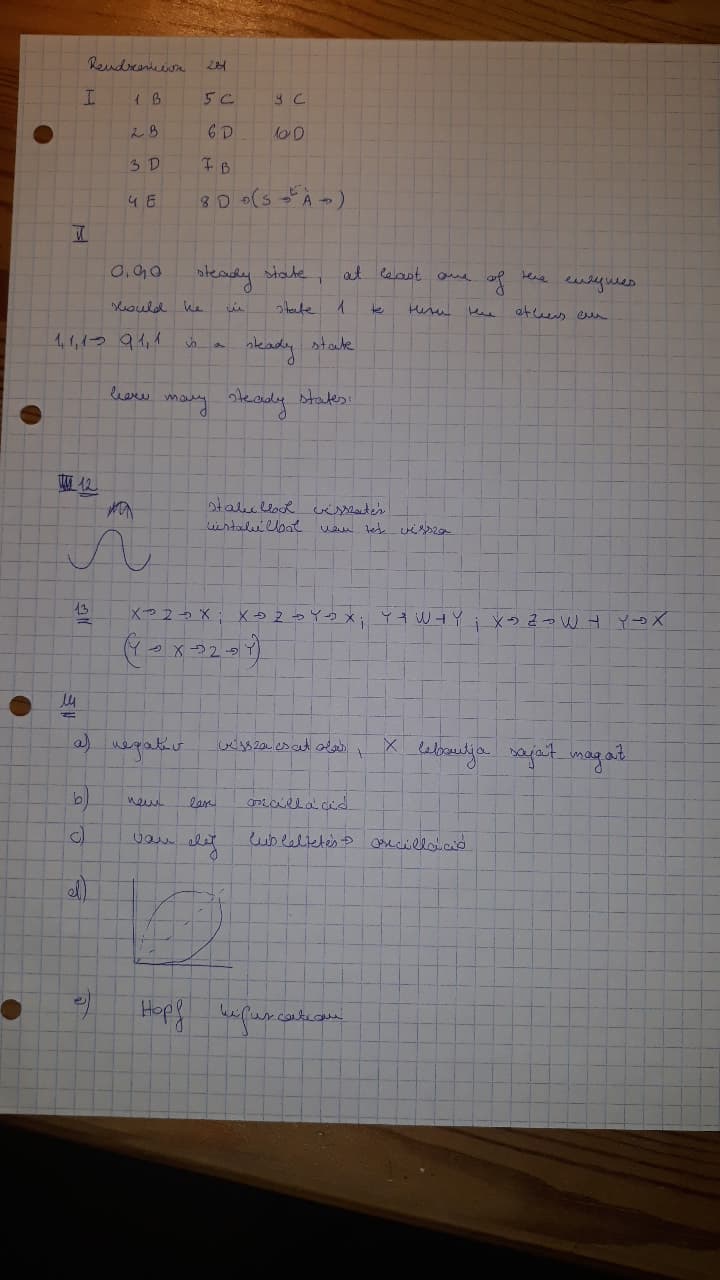 Rendszer ZH
I 1 B 5 C 9 C
2 B 6 D 10 D
3 D 7 B
4 E 8 D → (S → E A →)
II
0,0,0 steady state, at least one of the enzymes
should be in state 1 to turn the others on
1,1,1 → 0,1,1 is a steady state
how many steady states:
III 12
stabilból visszatér
instabilból nem tér vissza
13 X → Z → X; X → Z → Y → X; Y ⊣ W ⊣ Y; X → Z → W ⊣ Y → X
(Y → X → Z → Y)
14
a) negatív visszacsatolás, X lebontja saját magát
b) nem lesz oszcilláció
c) van elég késleltetés → oszcilláció
d)
e) Hopf bifurcation